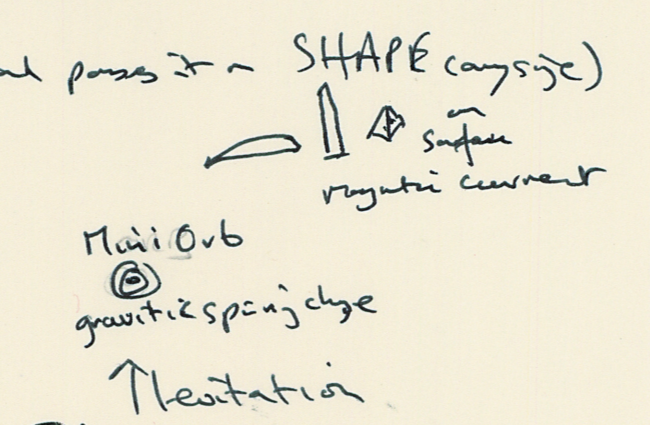 SHAPE (any size)
on
surface
magnetic current
Mini Orb
gravitic spin
↑ levitation